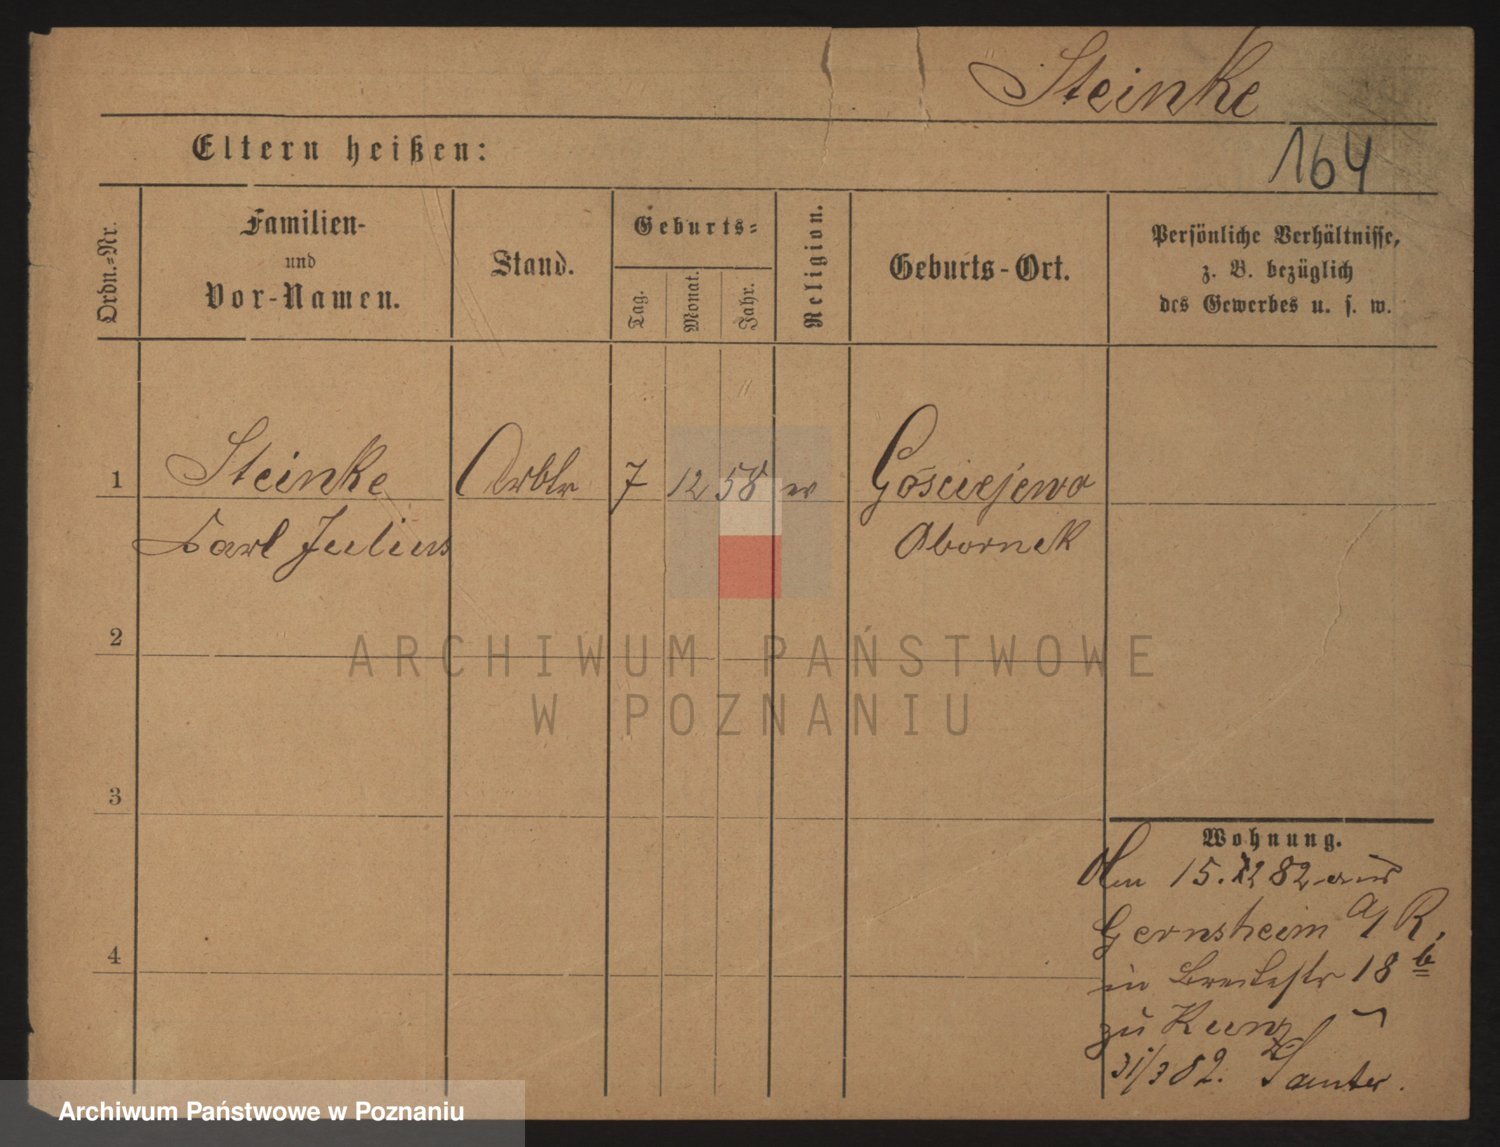 Steinke
Eltern heißen:
164
Ordn.=Nr.
Familien-
und
Vor-Namen.
Stand.
Geburts=
Tag.
Monat.
Jahr.
Religion.
Geburts-Ort.
Persönliche Verhältnisse,
z. B. bezüglich
des Gewerbes u. s. w.
1
Steinke
Arbtr
7
12
58
ev
Gościejewo
Carl Julius
Obornik
2
ARCHIWUM PAŃSTWOWE
W POZNANIU
3
Wohnung.
Am 15. 82 aus
Gernsheim a/R.
4
in Breitestr 18 b
zu Kunz
31/3 82. Santer.
Archiwum Państwowe w Poznaniu